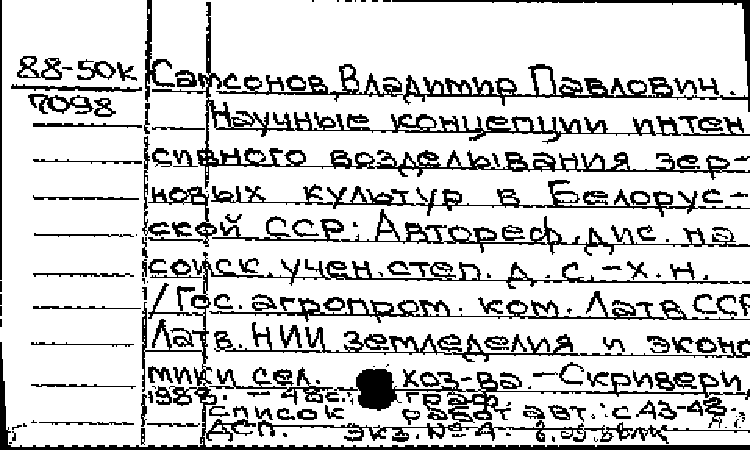 88-50к
7098
Самсонов Владимир Павлович.
Научные концепции интен
сивного возделывания зер-
новых культур в Белорус-
ской ССР: Автореф. дис. на
соиск. учен. степ. д. с.-х. н.
/Гос. агропром. ком. Латв ССР
Латв. НИИ земледелия и эконо
мики сел. хоз-ва. - Скривери,
1988. - 48с.: граф.
список работ авт.: с 43-48
ДСП. Экз. № 4.